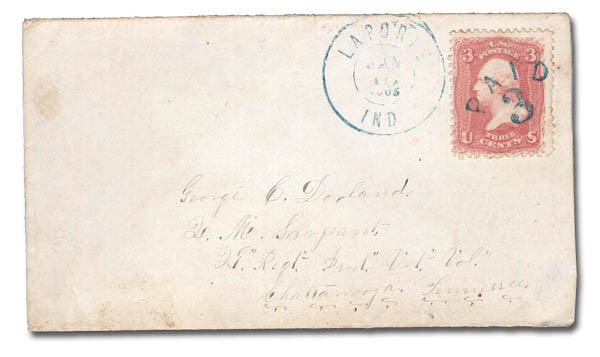 LAPORTE
JAN
1865
IND
U.S.
POSTAGE
3 3
PAID
3
THREE
U CENTS S
George C. Dorland.
Q. M. Sargeant.
Regt. Ind. Vet. Vol.
Chattanooga, Tennessee.